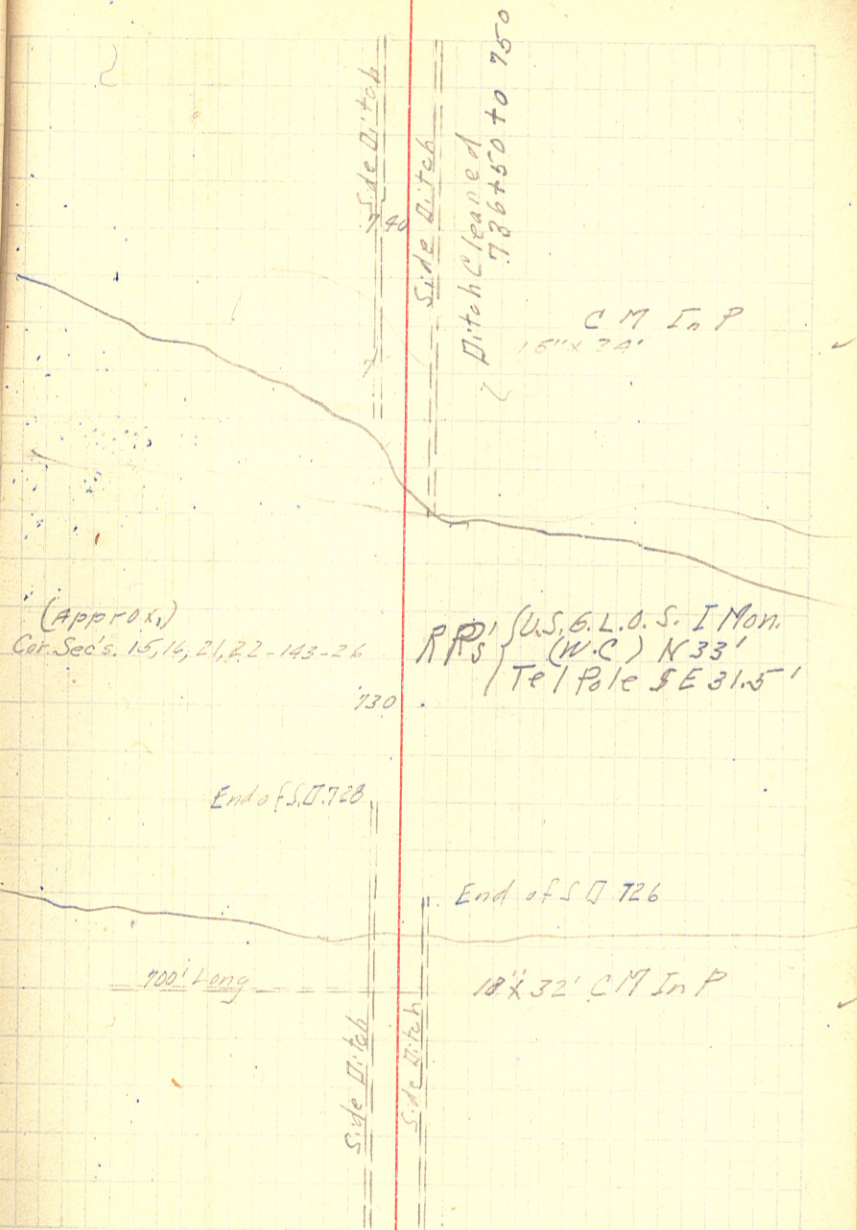 Side Ditch
740
Side Ditch
Ditch Cleaned
736+50 to 750
C M In P
(Approx.)
Cor. Sec's. 15, 16, 21, 22-143-26
RPs' { U.S.G.L.O.S. I Mon.
(W.C) N 33'
Tel Pole SE 31.5'
730
End of S.D. 728
End of S D 726
700' Long
18" x 32' CM In P
Side Ditch
Side Ditch